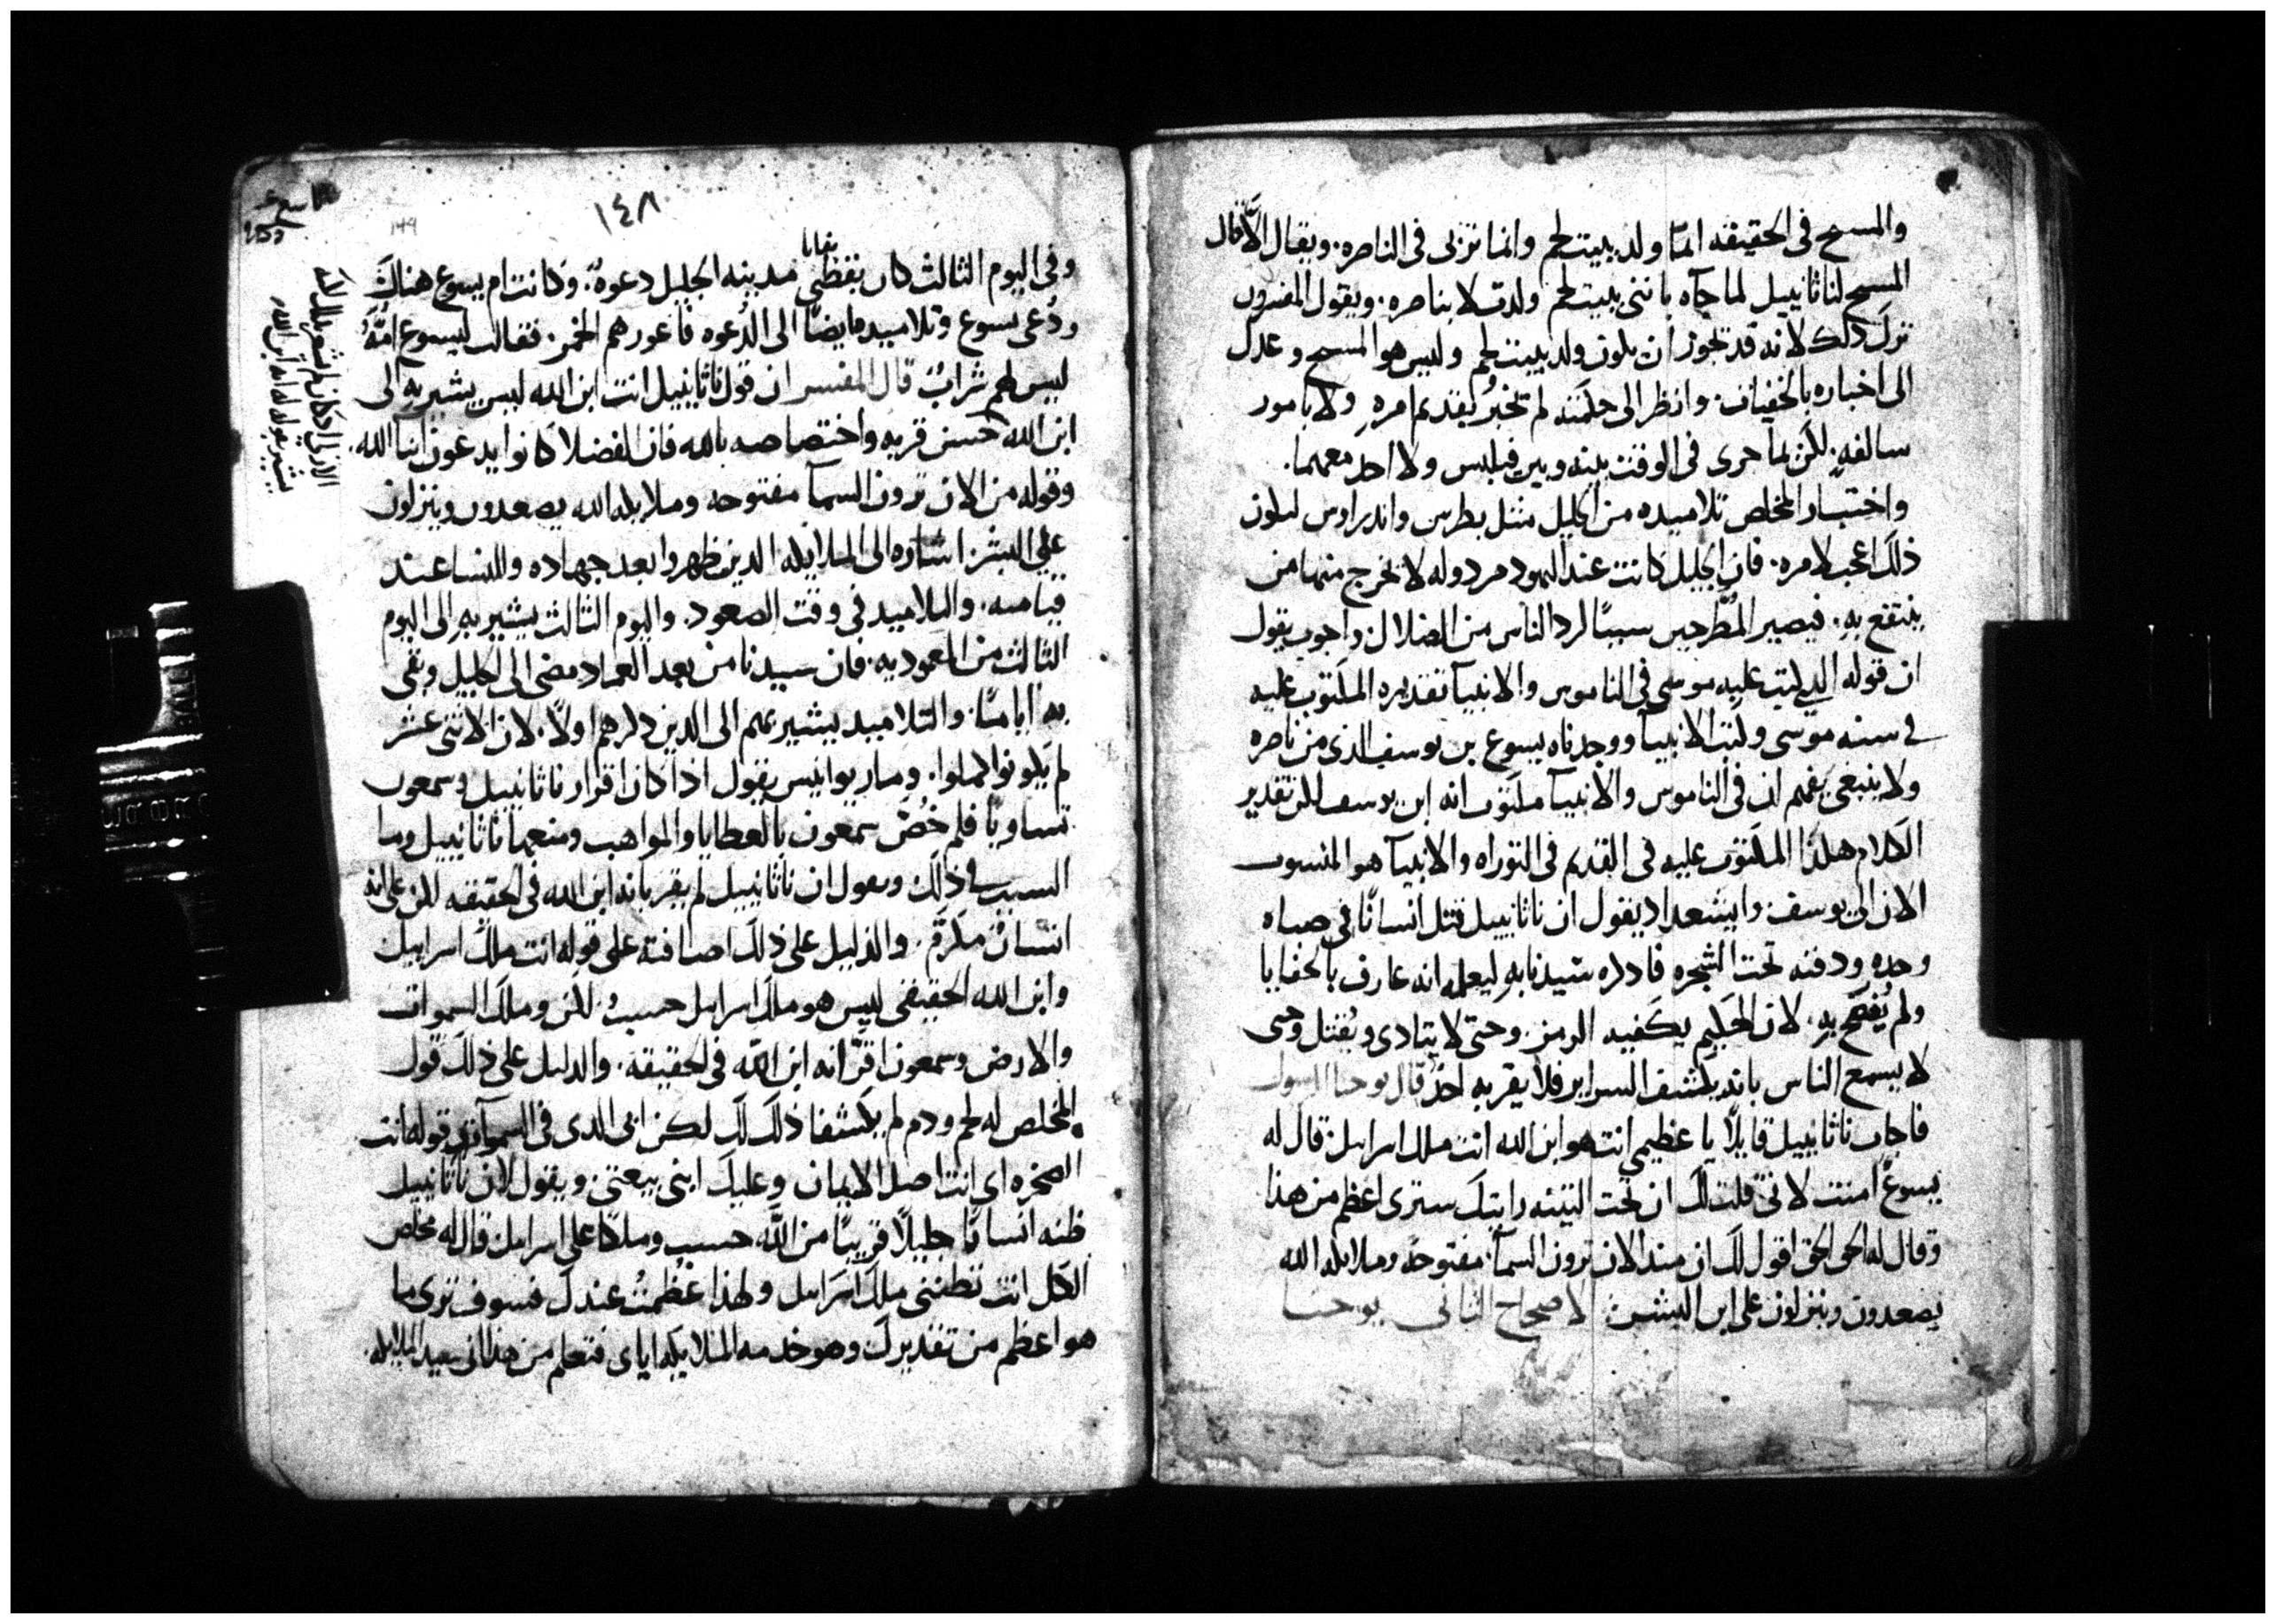 والمسيح فى الحقيقه انما ولد ببيت لحم وانما تربى فى الناصره. ويقال الّا قال
المسيح لناثانييل لما جآه باننى ببيت لحم ولدت لا بناصره. ويقول المفسرون
ترك ذلك لانه قد تجوز ان يكون ولد ببيت لحم وليس هو المسيح وعدل
الى اخباره بالخفيات. وانظر الى حكمته لم تخبر بقديم امره ولا بامور
سالفه. لكن بما جرى فى الوقت بينه وبين فيلبس ولا احد معهما.
واختيار المخلص تلاميده من الجليل مثل بطرس واندراوس ليكون
ذلك اعجب لامره. فان الجليل كانت عند اليهود مردوله لا يخرج منها من
ينتفع به. فيصير المُطَّرحين سببًا لرد الناس من الضلال واجوب يقول
ان قوله الدي كتب عليه موسى فى الناموس والانبيآ تقديره المكتوب عليه
فى سنه موسى وكتب الانبيآ ووجدناه يسوع بن يوسف الذى من ناصره
ولا ينبغى يفهم ان فى الناموس والانبيآ مكتوب انه ابن يوسف لكن تقدير
الكلام هكذا المكتوب عليه فى القديم فى التوراه والانبيآ هو المنسوب
الان الى يوسف. وايشعداد يقول ان ناثانييل قتل انسانًا فى صباه
وحده ودفنه تحت الشجره فادكره سيدنا به ليعلمه انه عارف بالخفايا
ولم يُفصح به. لان الحكيم يكفيه الرمز. وحتى لا يتادى ويُقتل وحتى
لا يسمع الناس بانه يكشف السراير فلا يقر به احدٌ قال يوحنا الرسول
فاجاب ناثانييل قايلًا يا عظيمي انت هو ابن الله انت ملك اسرايل قال له
يسوع امنت لانى قلت لك ان تحت التينه رايتك سترى اعظم من هذا
وقال له الحق الحق اقول لك ان مند الان ترون السمآ مفتوحة وملايكه الله
يصعدون وينزلون على ابن البشر. الاصحاح الثانى يوحنا
١٤٨
149
وفى اليوم الثالث كان بقطنى مدينه الجليل دعوهٌ. وكانت ام يسوع هناك
ودُعى يسوع وتلاميده ايضًا الى الدُعوه فاعورهم الخمر. فقالت ليسوع امُّهُ
ليس لهم شرابٌ قال المفسر ان قول ناثانييل انت ابن الله ليس يشير به الى
ابن الله حسن قربه واختصاصه بالله فان الفضلا كانوا يدعون ابنآ الله.
وقوله من الان ترون السمآ مفتوحه وملايكه الله يصعدون وينزلون
على البشر اشاره الى الملايكه الدين ظهروا بعد جهاده وللنسا عند
قيامته. والتلاميد فى وقت الصعود. واليوم الثالث يشير به الى اليوم
الثالث من المعموديه. فان سيدنا من بعد العماد مضى الى الجليل وبقى
به ايامًا. والتلاميد يشير بهم الى الدين دكرهم اولًا. لان الاثنى عشر
لم يكونوا كملوا. ومار يوانيس يقول اذا كان اقرار ناثانييل وسمعون
تساويا فلم خُصّ سمعون بالعطايا والمواهب ومنعها ناثانييل وما
السبب فى ذلك ويقول ان ناثانييل لم يقر بانه ابن الله فى الحقيقه لكن على انه
انسانٌ مكرم. والدليل على ذلك اضافته على قوله انت ملك اسراييل
وابن الله الحقيقى ليس هو ملك اسرايل حسب. لكن وملك السموات
والارض وسمعون اقرّ انه ابن الله فى الحقيقه. والدليل على ذلك قول
المخلص له لحم ودم لم يكشفا ذلك لك لكن ابى الدى فى السموات وقوله انت
الصخره اى انت اصل الايمان وعليك ابنى بيعتى ويقول لان ناثانييل
ظنه انسانًا جليلًا قريبًا من الله حسب وملكا على اسرايل قال له مخلص
الكل انت تظننى ملك اسرايل ولهذا عَظُمتُ عندك فسوف ترى ما
هو اعظم من تقديرك وهو خدمه الملايكه اياى فتعلم من هذا انى سيد الملايكه.